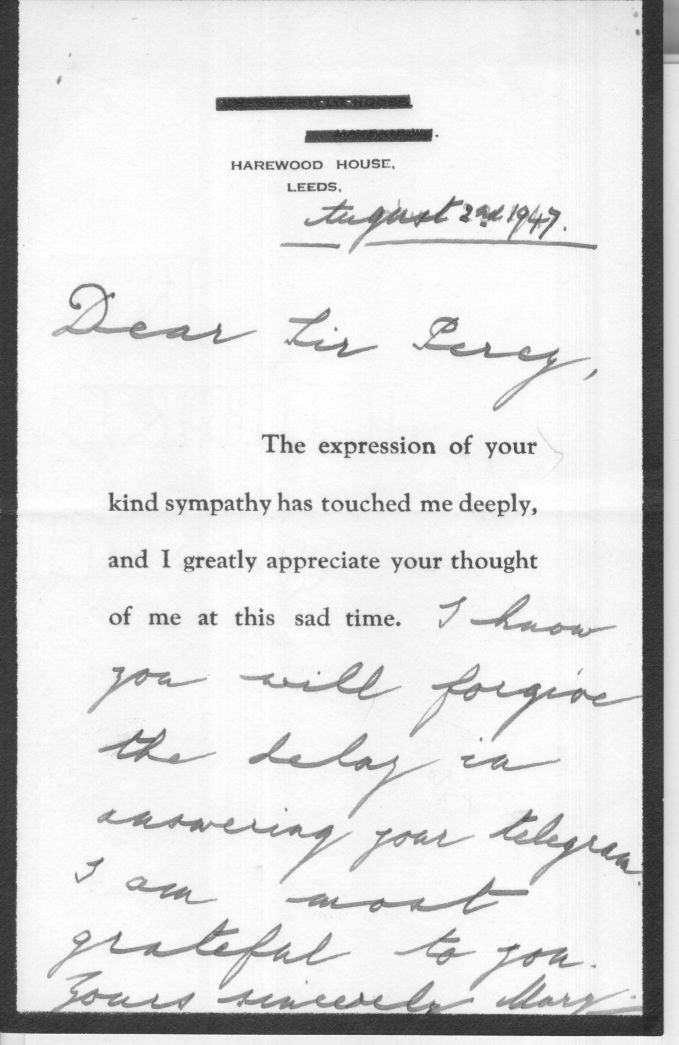 HAREWOOD HOUSE,
LEEDS,
August 2nd 1947.
Dear Sir Percy,
The expression of your
kind sympathy has touched me deeply,
and I greatly appreciate your thought
of me at this sad time. I know
you will forgive
the delay in
answering your telegram.
I am most
grateful to you.
Yours sincerely Mary.